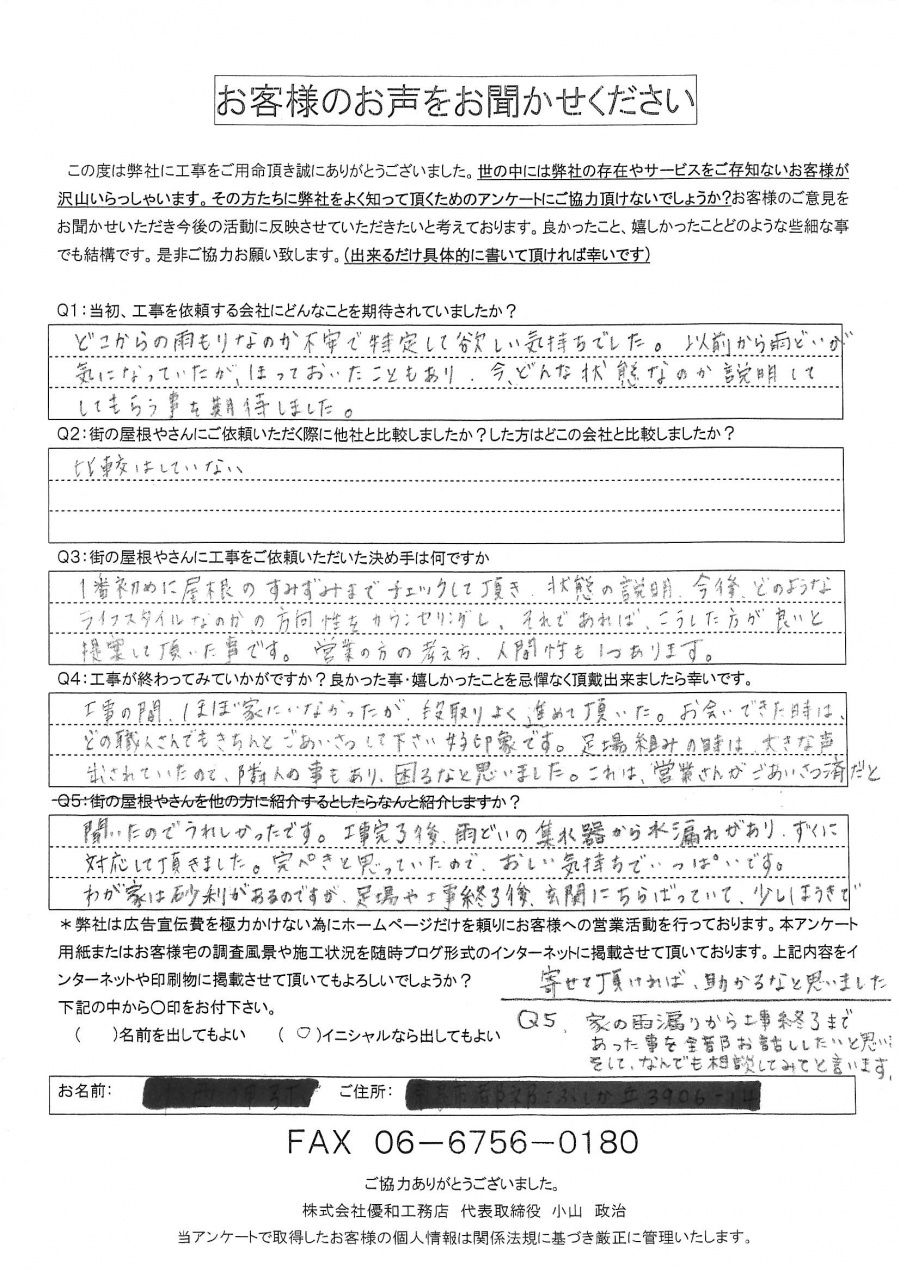 お客様のお声をお聞かせください
この度は弊社に工事をご用命頂き誠にありがとうございました。世の中には弊社の存在やサービスをご存知ないお客様が
沢山いらっしゃいます。その方たちに弊社をよく知って頂くためのアンケートにご協力頂けないでしょうか?お客様のご意見を
お聞かせいただき今後の活動に反映させていただきたいと考えております。良かったこと、嬉しかったことどのような些細な事
でも結構です。是非ご協力お願い致します。(出来るだけ具体的に書いて頂ければ幸いです)
Q1:当初、工事を依頼する会社にどんなことを期待されていましたか?
どこからの雨もりなのか不安で特定して欲しい気持ちでした。以前から雨どいが
気になっていたが、ほっておいたこともあり、今、どんな状態なのか説明して
してもらう事を期待しました。
Q2:街の屋根やさんにご依頼いただく際に他社と比較しましたか?した方はどこの会社と比較しましたか?
比較はしていない
Q3:街の屋根やさんに工事をご依頼いただいた決め手は何ですか
1番初めに屋根のすみずみまでチェックして頂き、状態の説明、今後、どのような
ライフスタイルなのかの方向性をカウンセリングし、それであれば、こうした方が良いと
提案して頂いた事です。営業の方の考え方、人間性も1つあります。
Q4:工事が終わってみていかがですか?良かった事・嬉しかったことを忌憚なく頂戴出来ましたら幸いです。
工事の間、ほぼ家にいなかったが、段取りよく進めて頂いた。お会いできた時は、
どの職人さんでもきちんとごあいさつして下さい好印象です。足場組みの時は、大きな声
出されていたので、隣人の事もあり、困るなと思いました。これは、営業さんがごあいさつ済だと
Q5:街の屋根やさんを他の方に紹介するとしたらなんと紹介しますか?
聞いたのでうれしかったです。工事完了後、雨どいの集水器から水漏れがあり、すぐに
対応して頂きました。完ぺきと思っていたので、おしい気持ちでいっぱいです。
わが家は砂利があるのですが、足場や工事終了後、玄関にちらばっていて、少しほうきで
*弊社は広告宣伝費を極力かけない為にホームページだけを頼りにお客様への営業活動を行っております。本アンケート
用紙またはお客様宅の調査風景や施工状況を随時ブログ形式のインターネットに掲載させて頂いております。上記内容をイ
ンターネットや印刷物に掲載させて頂いてもよろしいでしょうか?
寄せて頂ければ、助かるなと思いました
下記の中から〇印をお付下さい。
( )名前を出してもよい (○)イニシャルなら出してもよい
Q5、家の雨漏りから工事終了まで
あった事を全部お話ししたいと思い、
そして、なんでも相談してみてと言います。
お名前: ご住所:
FAX 06-6756-0180
ご協力ありがとうございました。
株式会社優和工務店 代表取締役 小山 政治
当アンケートで取得したお客様の個人情報は関係法規に基づき厳正に管理いたします。